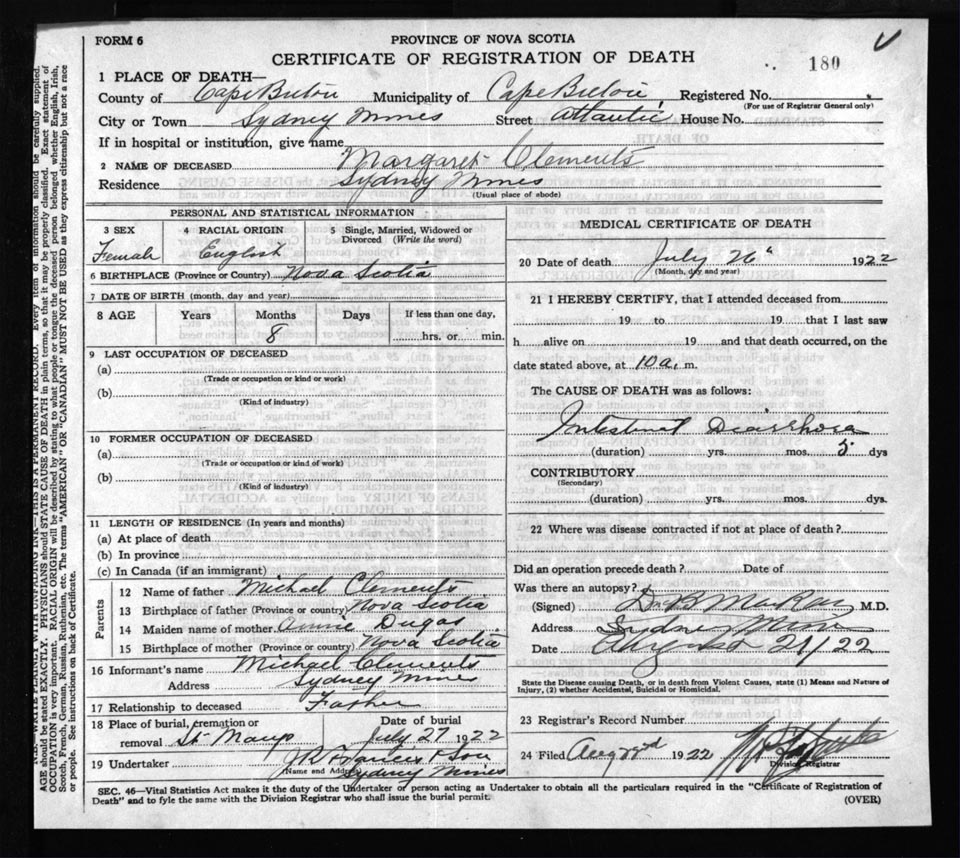 FORM 6
PROVINCE OF NOVA SCOTIA
CERTIFICATE OF REGISTRATION OF DEATH
180
1 PLACE OF DEATH—
County of Cape Breton Municipality of Cape Breton Registered No.
(For use of Registrar General only)
City or Town Sydney Mines Street Atlantic House No.
If in hospital or institution, give name
2 NAME OF DECEASED Margaret Clements
Residence Sydney Mines
(Usual place of abode)
PERSONAL AND STATISTICAL INFORMATION
3 SEX 4 RACIAL ORIGIN 5 Single, Married, Widowed or
Divorced (Write the word)
Female English
6 BIRTHPLACE (Province or Country) Nova Scotia
7 DATE OF BIRTH (month, day and year)
8 AGE Years Months Days If less than one day,
8 hrs. or min.
9 LAST OCCUPATION OF DECEASED
(a)
(Trade or occupation or kind or work)
(b)
(Kind of industry)
10 FORMER OCCUPATION OF DECEASED
(a)
(Trade or occupation or kind of work)
(b)
(Kind of industry)
11 LENGTH OF RESIDENCE (In years and months)
(a) At place of death
(b) In province
(c) In Canada (if an immigrant)
Parents
12 Name of father Michael Clements
13 Birthplace of father (Province or country) Nova Scotia
14 Maiden name of mother Annie Dugas
15 Birthplace of mother (Province or country) Nova Scotia
16 Informant's name Michael Clements
Address Sydney Mines
17 Relationship to deceased Father
18 Place of burial, cremation or Date of burial
removal St Marys July 27 1922
19 Undertaker J R Francis & Son
(Name and Address) Sydney Mines
MEDICAL CERTIFICATE OF DEATH
20 Date of death July 26 1922
(Month, day and year)
21 I HEREBY CERTIFY, that I attended deceased from
19 to 19 that I last saw
h alive on 19 and that death occurred, on the
date stated above, at 10 a. m.
The CAUSE OF DEATH was as follows:
Intestinal Diarrhoea
(duration) yrs. mos. 5 dys
CONTRIBUTORY
(Secondary)
(duration) yrs. mos. dys.
22 Where was disease contracted if not at place of death?
Did an operation precede death? Date of
Was there an autopsy?
(Signed) Dr B McKay M.D.
Address Sydney Mines
Date August 21/22
State the Disease causing Death, or in death from Violent Causes, state (1) Means and Nature of
Injury, (2) whether Accidental, Suicidal or Homicidal.
23 Registrar's Record Number
24 Filed Aug 22nd 1922
Division Registrar
SEC. 46—Vital Statistics Act makes it the duty of the Undertaker or person acting as Undertaker to obtain all the particulars required in the "Certificate of Registration of
Death" and to fyle the same with the Division Registrar who shall issue the burial permit.
(OVER)
N.B.—WRITE PLAINLY WITH UNFADING INK—THIS IS A PERMANENT RECORD. Every item of information should be carefully supplied.
AGE should be stated EXACTLY. PHYSICIANS should STATE CAUSE OF DEATH in plain terms, so that it may be properly classified. Exact statement of
OCCUPATION is very important. RACIAL ORIGIN will be described by stating to what people or tongue the deceased person belonged whether English, Irish,
Scotch, French, German, Russian, Ruthenian, etc. The terms "AMERICAN" OR "CANADIAN" MUST NOT BE USED as they express citizenship but not a race
or people. See instructions on back of Certificate.